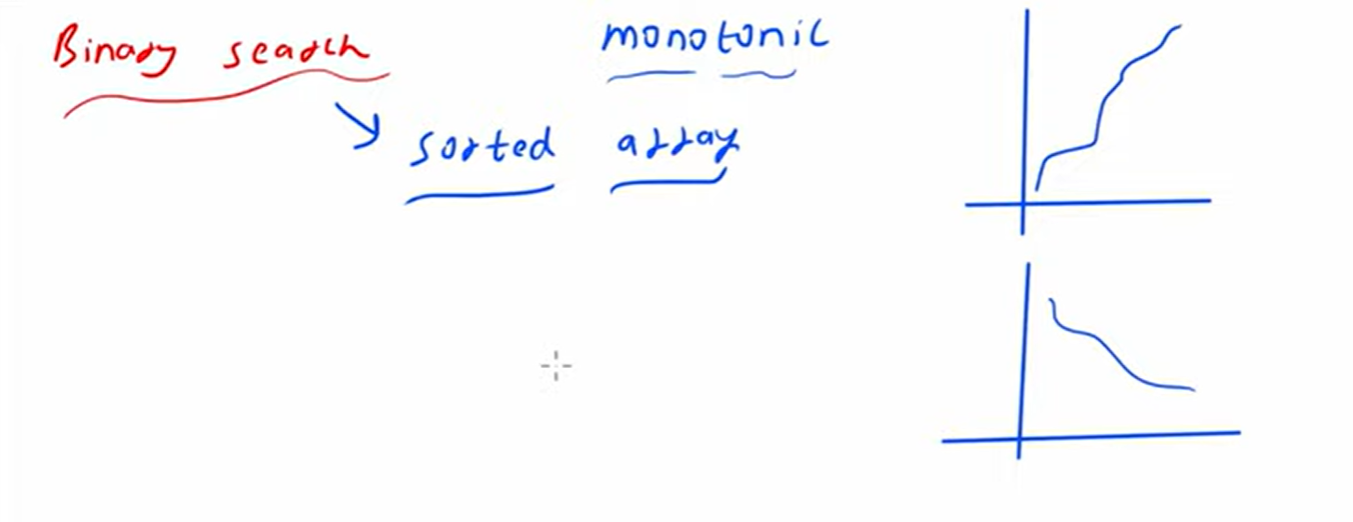 Binary search
monotonic
sorted array